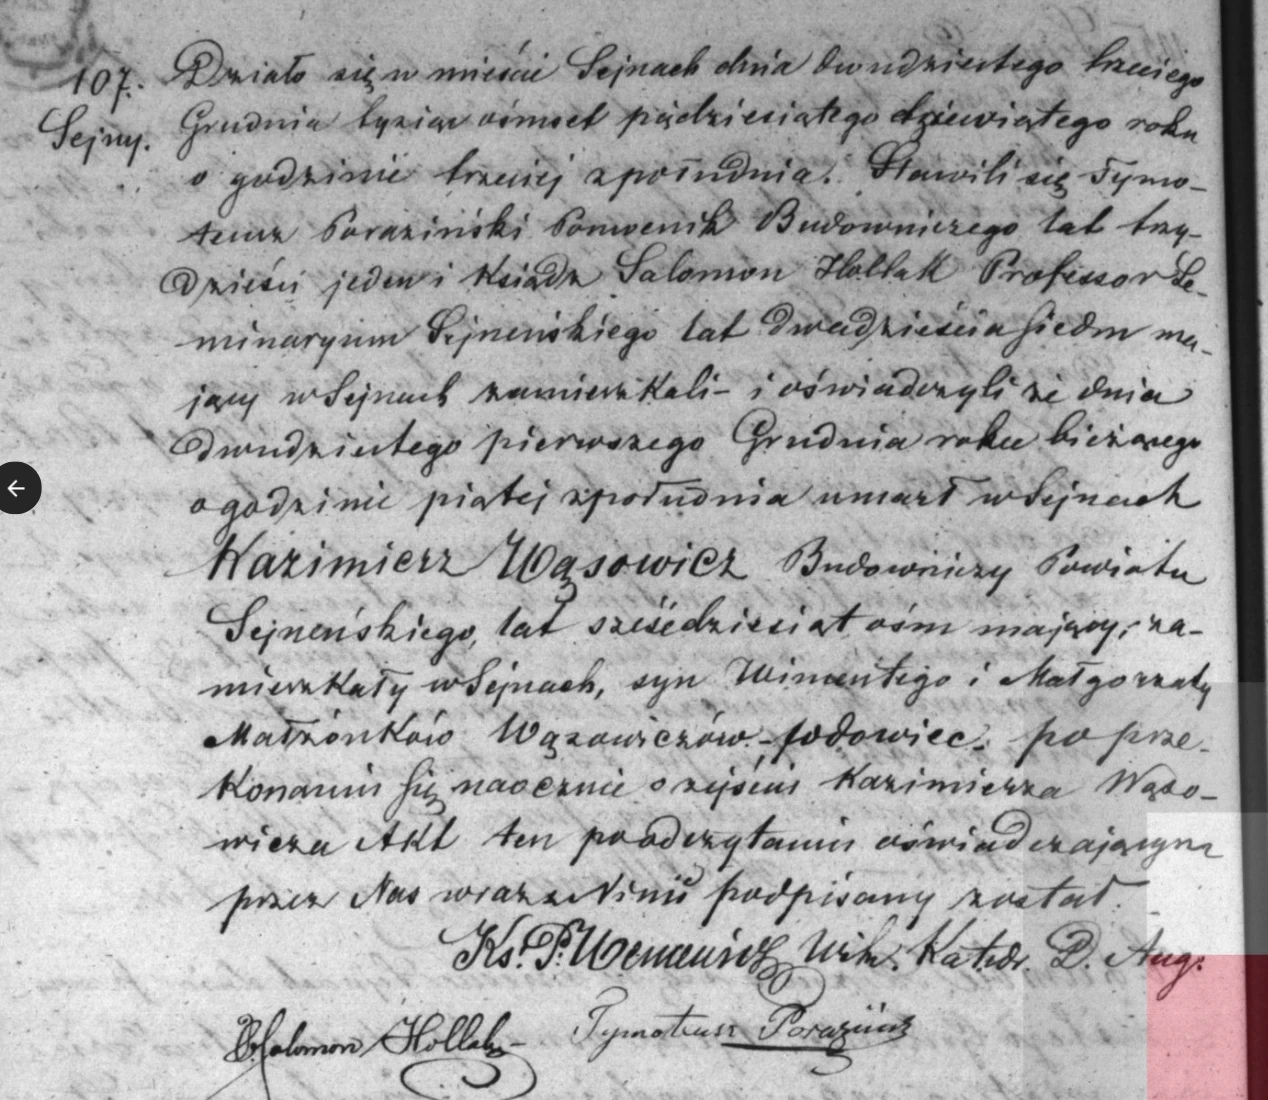 107.
Sejny.
Działo się w mieście Sejnach dnia dwudziestego trzeciego
Grudnia tysiąc ośmset pięćdziesiątego dziewiątego roku
o godzinie trzeciej z południa. Stawili się Tymo-
teusz Poraziński Pomocnik Budowniczego lat trzy-
dzieści jeden i Ksiądz Salomon Hollak Professor Se-
minaryum Sejneńskiego lat dwadzieścia siedm ma-
jący w Sejnach zamieszkali - i oświadczyli że dnia
dwudziestego pierwszego Grudnia roku bieżącego
o godzinie piątej z południa umarł w Sejnach
Kazimierz Wąsowicz Budowniczy Powiatu
Sejneńskiego, lat sześćdziesiąt ośm mający, za-
mieszkały w Sejnach, syn Wincentego i Małgorzaty
Małżonków Wąsowiczów - wdowiec. po prze-
konaniu się naocznie o zejściu Kazimierza Wąso-
wicza Akt ten po odczytaniu oświadczającym
przez Nas wraz z Nimi podpisany został.
Ks. P. Wik. Katedr. D. Aug.
Salomon Hollak Tymoteusz Poraziński